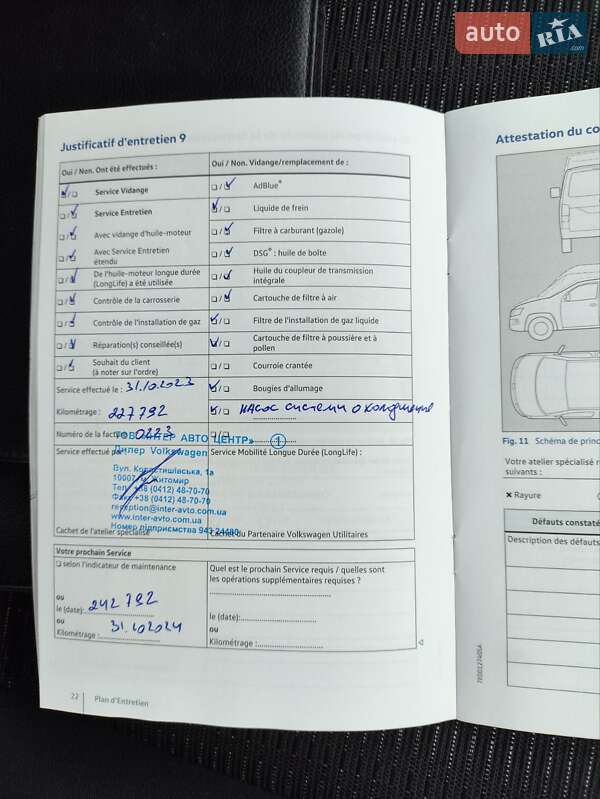 auto RIA .com
Justificatif d'entretien 9
Oui / Non. Ont été effectués :
Service Vidange
Service Entretien
Avec vidange d'huile-moteur
Avec Service Entretien
étendu
De l'huile-moteur longue durée
(LongLife) a été utilisée
Contrôle de la carrosserie
Contrôle de l'installation de gaz
Réparation(s) conseillée(s)
Souhait du client
(à noter sur l'ordre)
Service effectué le : 31.10.2023
Kilométrage : 227792
Numéro de la facture 0223
Service effectué par
Oui / Non. Vidange/remplacement de :
AdBlue®
Liquide de frein
Filtre à carburant (gazole)
DSG® : huile de boîte
Huile du coupleur de transmission
intégrale
Cartouche de filtre à air
Filtre de l'installation de gaz liquide
Cartouche de filtre à poussière et à
pollen
Courroie crantée
Bougies d'allumage
насос системи охолодження
ТОВ "ІНТЕР АВТО ЦЕНТР» 1
Дилер Volkswagen
Вул. Коростишівська, 1а
10007, м. Житомир
Тел. +38 (0412) 48-70-70
Факс +38 (0412) 48-70-70
reception@inter-avto.com.ua
www.inter-avto.com.ua
Номер підприємства 943
Cachet de l'atelier spécialisé
Service Mobilité Longue Durée (LongLife) :
Cachet du Partenaire Volkswagen Utilitaires
Votre prochain Service
selon l'indicateur de maintenance
ou
le (date): 242 792
ou 31.10.2024
Kilométrage :
Quel est le prochain Service requis / quelles sont
les opérations supplémentaires requises ?
le (date):
ou
Kilométrage :
22 Plan d'Entretien
Attestation du co
Fig. 11 Schéma de princ
Votre atelier spécialisé r
suivants :
Rayure
Défauts constaté
Description des défauts